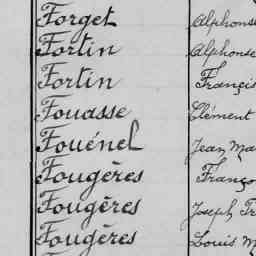 Forget Alphonse
Fortin Alphonse
Fortin Franço
Fouasse Clément
Fouénel Jean Ma
Fougères Franço
Fougères Joseph Fr
Fougères Louis M